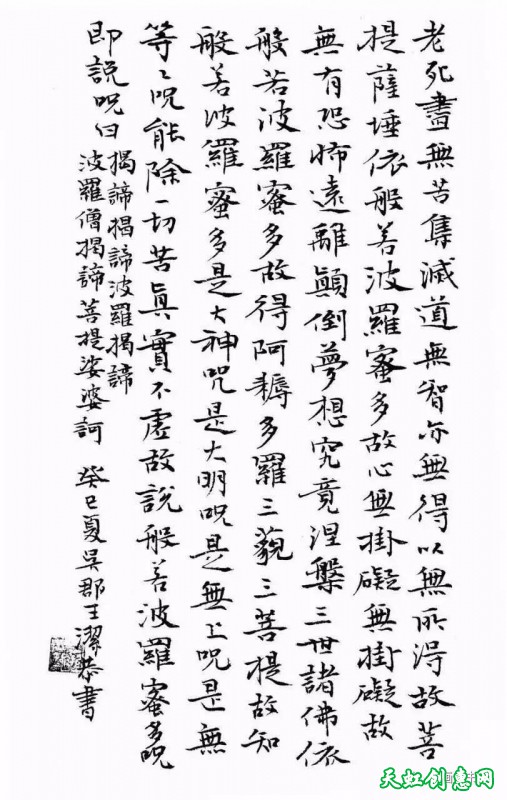 老死盡無苦集滅道無智亦無得以無所得故菩
提薩埵依般若波羅蜜多故心無掛礙無掛礙故
無有恐怖遠離顛倒夢想究竟涅槃三世諸佛依
般若波羅蜜多故得阿耨多羅三藐三菩提故知
般若波羅蜜多是大神咒是大明咒是無上咒是無
等々咒能除一切苦真實不虛故說般若波羅蜜多呪
即說呪曰
揭諦揭諦波羅揭諦
波羅僧揭諦菩提娑婆訶
癸巳夏吳郡王潔恭書
天虹创意网